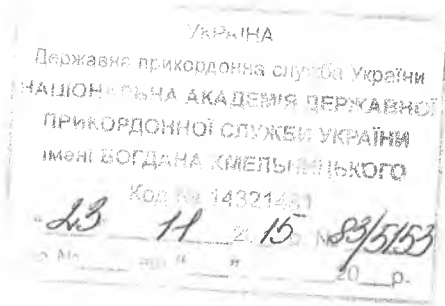 УКРАЇНА
Державна прикордонна служба України
НАЦІОНАЛЬНА АКАДЕМІЯ ДЕРЖАВНОЇ
ПРИКОРДОННОЇ СЛУЖБИ УКРАЇНИ
імені БОГДАНА ХМЕЛЬНИЦЬКОГО
Код № 14321481
"23" 11 2015 р. № 83/5153
на № від " " 20 р.